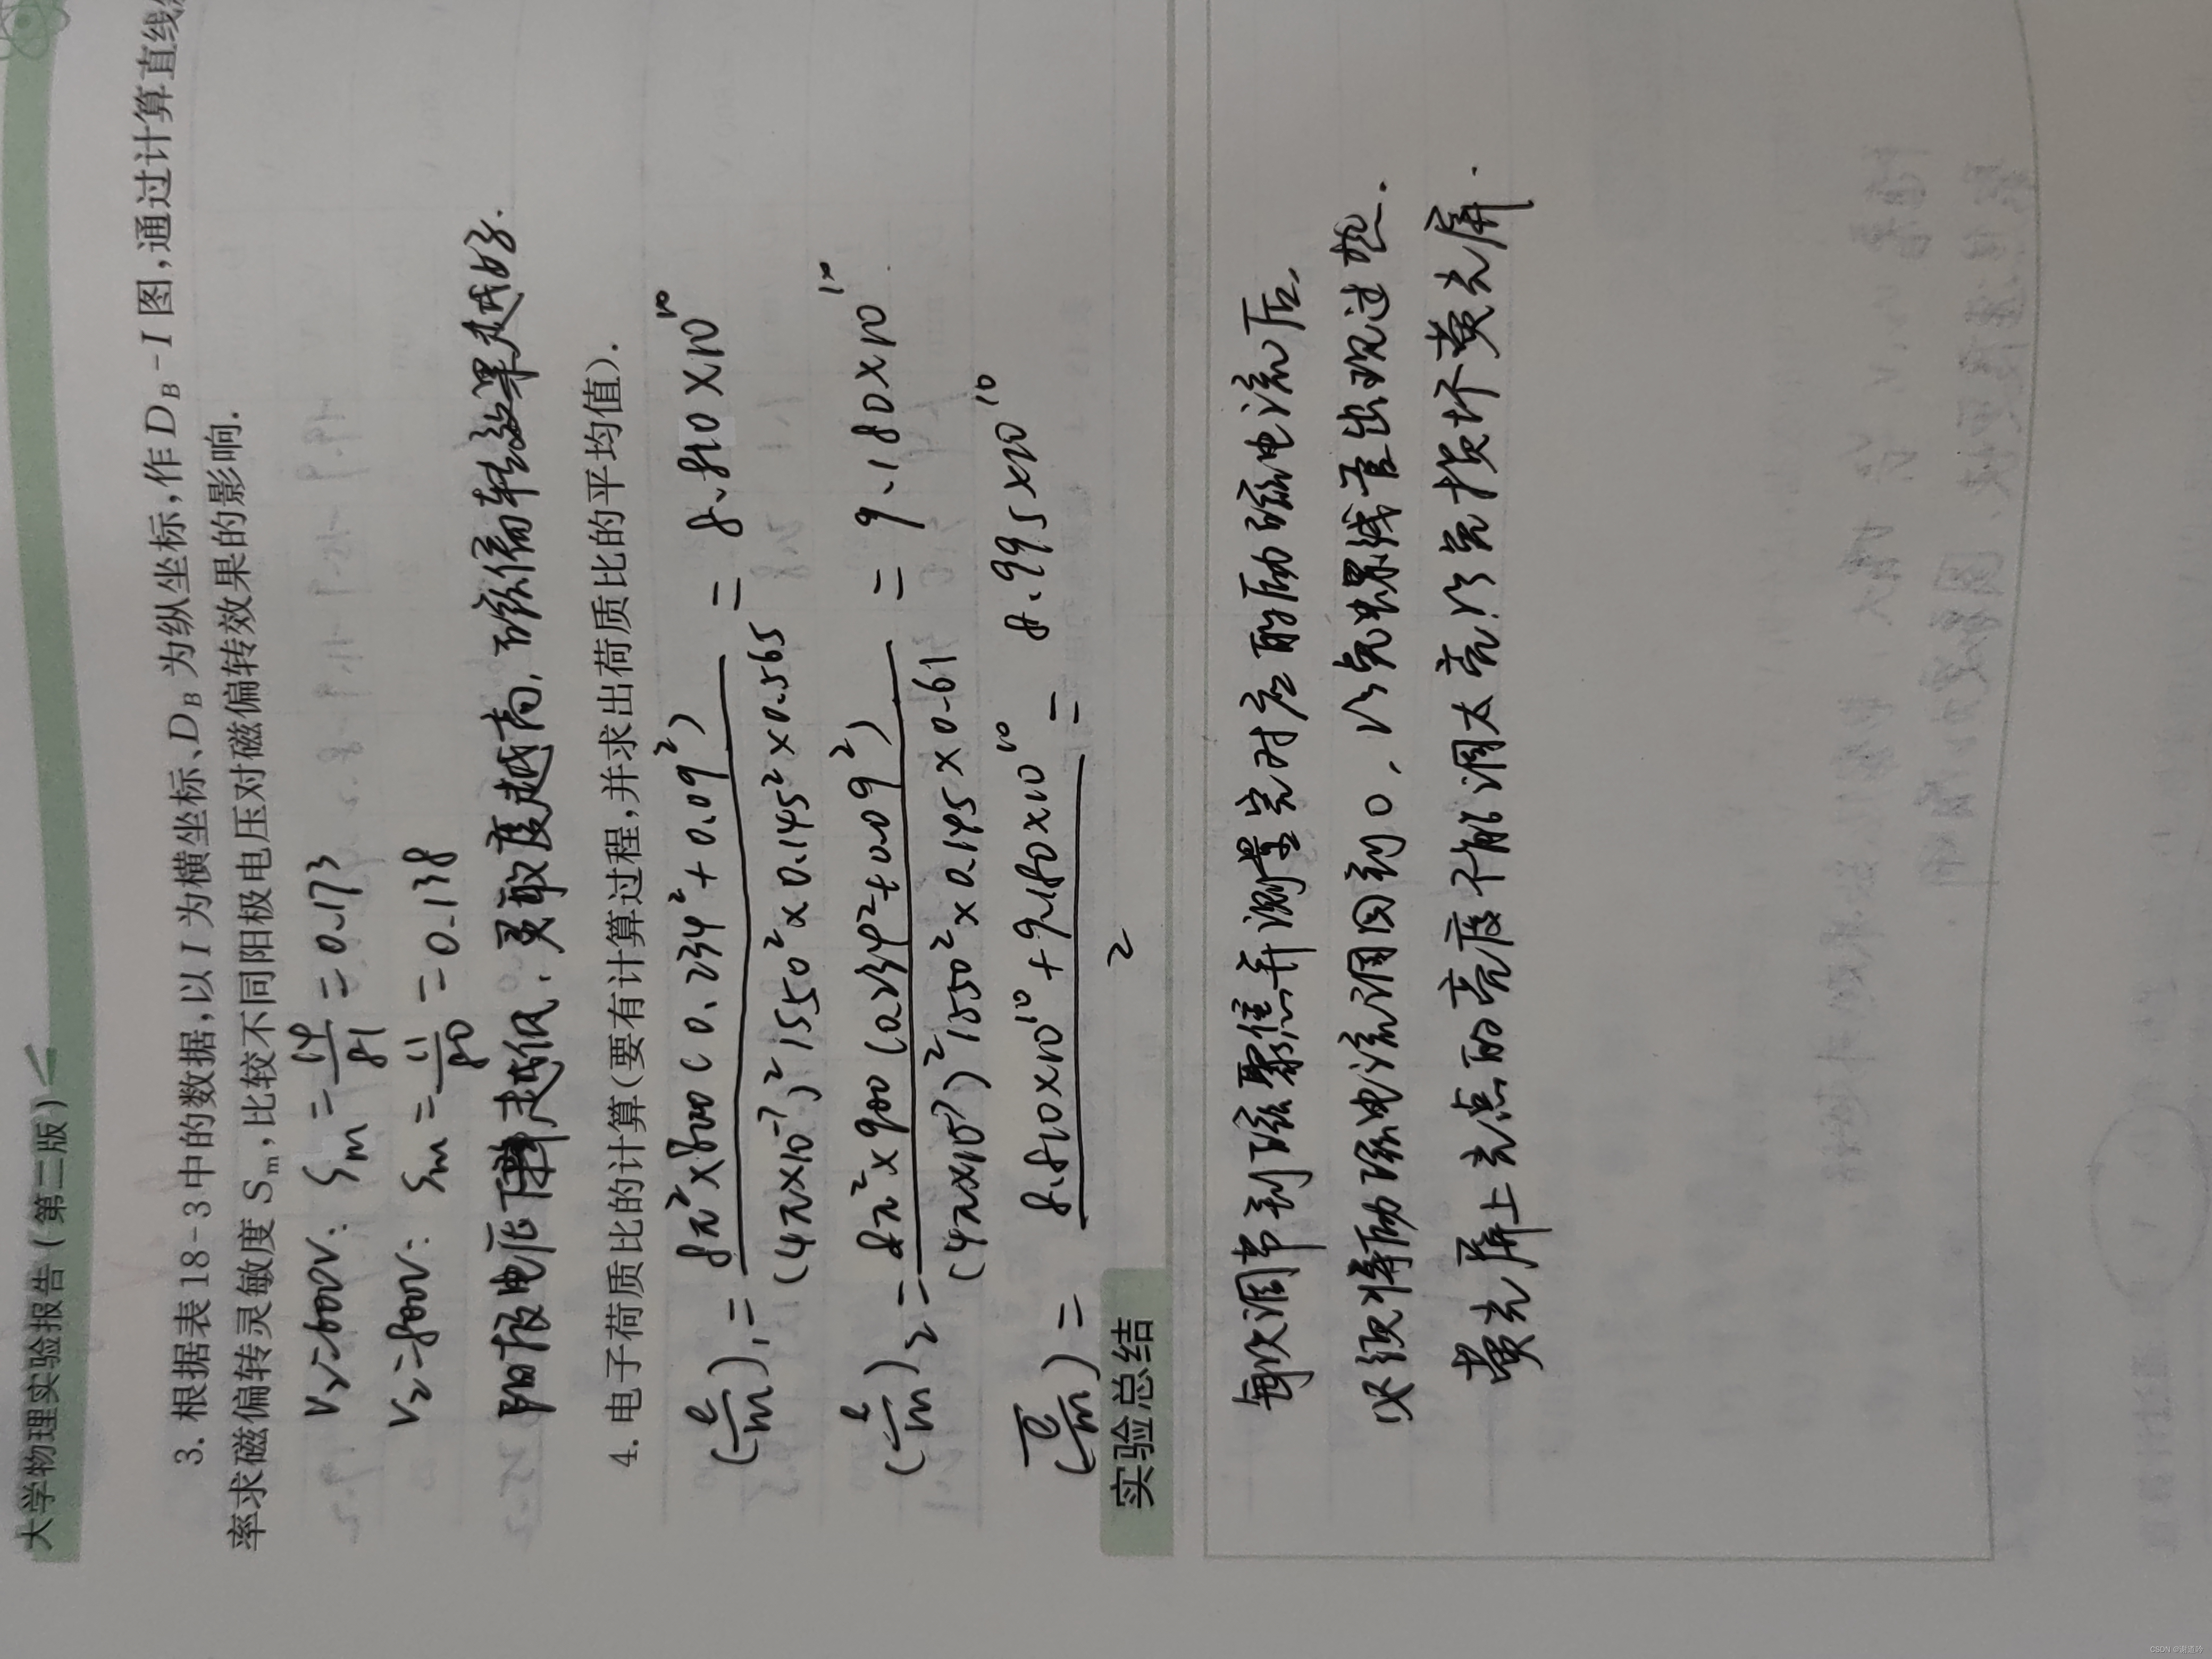 大学物理实验报告(第二版)
3.根据表18-3中的数据,以I为横坐标、D_B为纵坐标,作D_B-I图,通过计算直线
率求磁偏转灵敏度S_m,比较不同阳极电压对磁偏转效果的影响.
V_2=600V: S_m = 14/81 = 0.173
V_2=800V: S_m = 11/80 = 0.138
阳极电压越低,灵敏度越高,磁偏转效果越好.
4.电子荷质比的计算(要有计算过程,并求出荷质比的平均值).
(e/m)_1 = 8π²×800(0.234²+0.09²) / (4π×10⁻⁷)²1550²×0.145²×0.565 = 8.810×10¹⁰
(e/m)_2 = 8π²×900(0.234²+0.09²) / (4π×10⁻⁷)²1550²×0.145×0.61 = 9.180×10¹⁰
(e/m) = 8.810×10¹⁰+9.180×10¹⁰ / 2 = 8.995×10¹⁰
实验总结
每次调节到磁聚焦并测量完对应的励磁电流后,
必须将励磁电流调回到0,以免螺线管出现过热.
荧光屏上光点的亮度不能调太亮,以免损坏荧光屏.